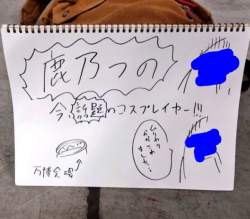 鹿乃つの
今話題のコスプレイヤー!!!
万博会場